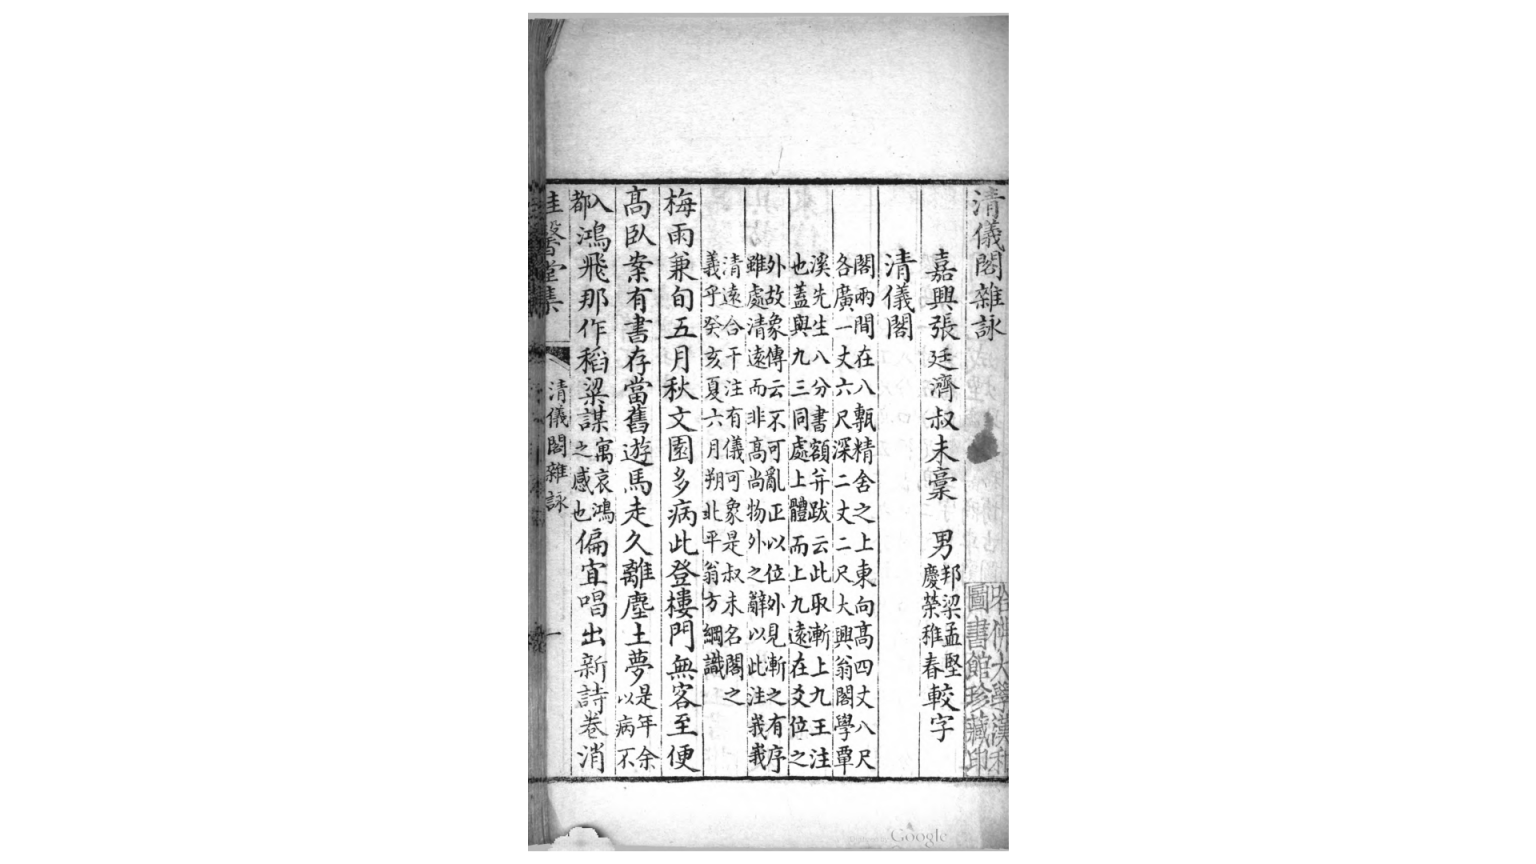 清儀閣雜詠
哈佛大學漢和
圖書館珍藏印
嘉興張廷濟叔未稾　男邦梁孟堅慶榮稚春較字
清儀閣
閣兩間在八甎精舍之上東向高四丈八尺
各廣一丈六尺深二丈二尺大興翁閣學覃
溪先生八分書額并跋云此取漸上九王注
也蓋與九三同處上體而上九遠在爻位之
外故象傳云不可亂正以位外見漸之有序
雖處清遠而非高尚物外之辭以此注峩峩
清遠合干注有儀可象是叔未名閣之
義乎癸亥夏六月朔北平翁方綱識
梅雨兼旬五月秋文園多病此登樓門無客至便
高臥案有書存當舊遊馬走久離塵土夢是年余以病不
入都鴻飛那作稻粱謀寓哀鴻之感也偏宜唱出新詩卷消
桂馨堂集　清儀閣雜詠　一
Google